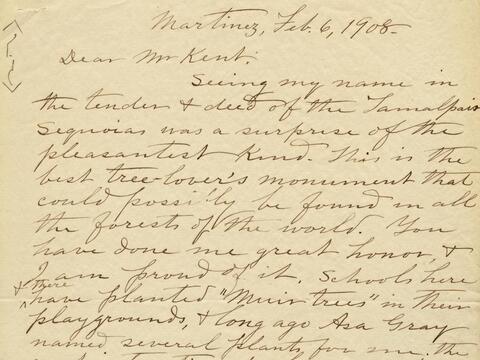 Martinez, Feb. 6, 1908.
Dear Mr Kent:
Seeing my name in
the tender & deed of the Tamalpais
Sequoias was a surprise of the
pleasantest kind. This is the
best tree-lover's monument that
could possibly be found in all
the forests of the world. You
have done me great honor, &
I am proud of it. Schools here
& there
have planted "Muir trees" in their
playgrounds, & long ago Asa Gray
named several plants for me, the